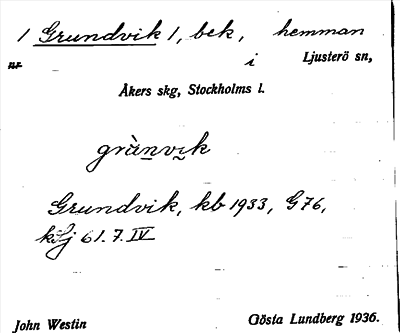 1 Grundvik 1, bek, hemman
nr i Ljusterö sn,
Åkers skg, Stockholms l.
grànvik
Grundvik, kb 1933, G 76,
kölj 61.7.IV
John Westin Gösta Lundberg 1936.